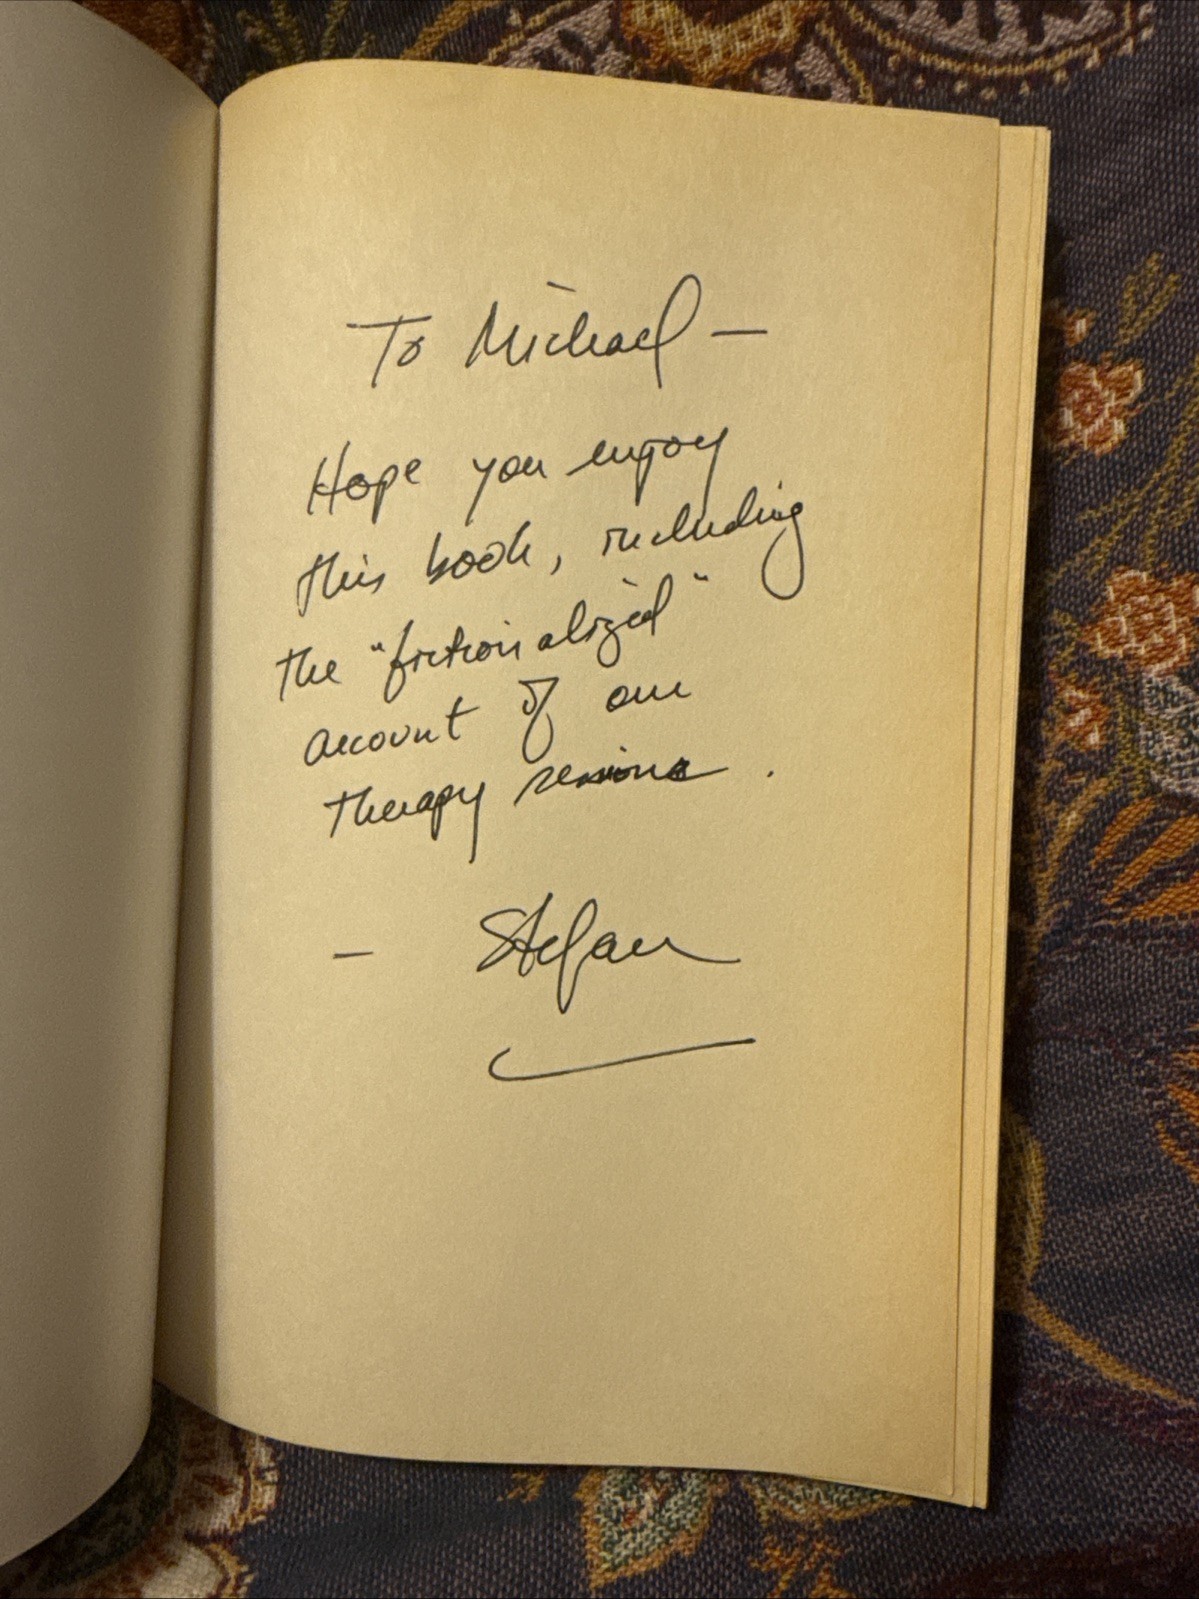 To Michael —
Hope you enjoy
this book, including
the "fictionalized"
account of our
therapy sessions.
— Stefan